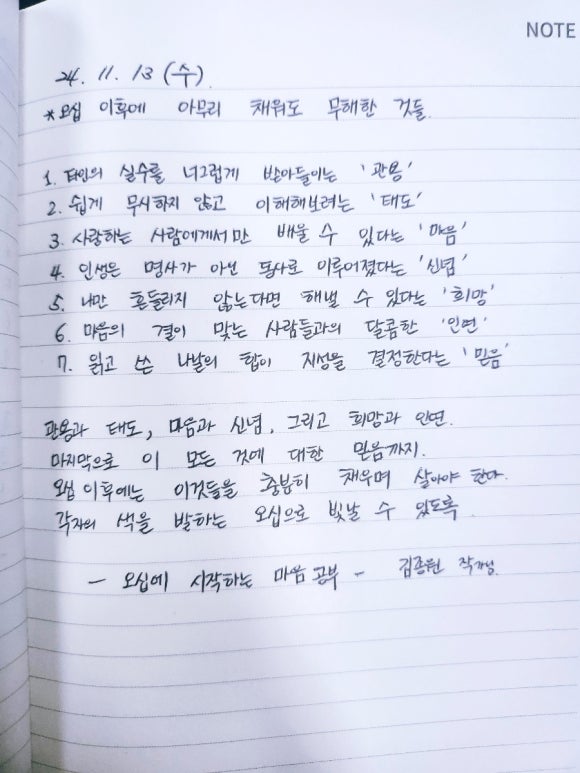 NOTE
24. 11. 13 (수).
*오십 이후에 아무리 채워도 무해한 것들.
1. 타인의 실수를 너그럽게 받아들이는 '관용'
2. 쉽게 무시하지 않고 이해해보려는 '태도'
3. 사랑하는 사람에게서만 배울 수 있다는 '마음'
4. 인생은 명사가 아닌 동사로 이루어졌다는 '신념'
5. 나만 흔들리지 않는다면 해낼 수 있다는 '희망'
6. 마음의 결이 맞는 사람들과의 달콤한 '인연'
7. 읽고 쓴 나날의 합이 지성을 결정한다는 '믿음'
관용과 태도, 마음과 신념, 그리고 희망과 인연.
마지막으로 이 모든 것에 대한 믿음까지.
오십 이후에는 이것들을 충분히 채우며 살아야 한다.
각자의 색을 발하는 오십으로 빛날 수 있도록.
- 오십에 시작하는 마음 공부 - 김종원 작가님.